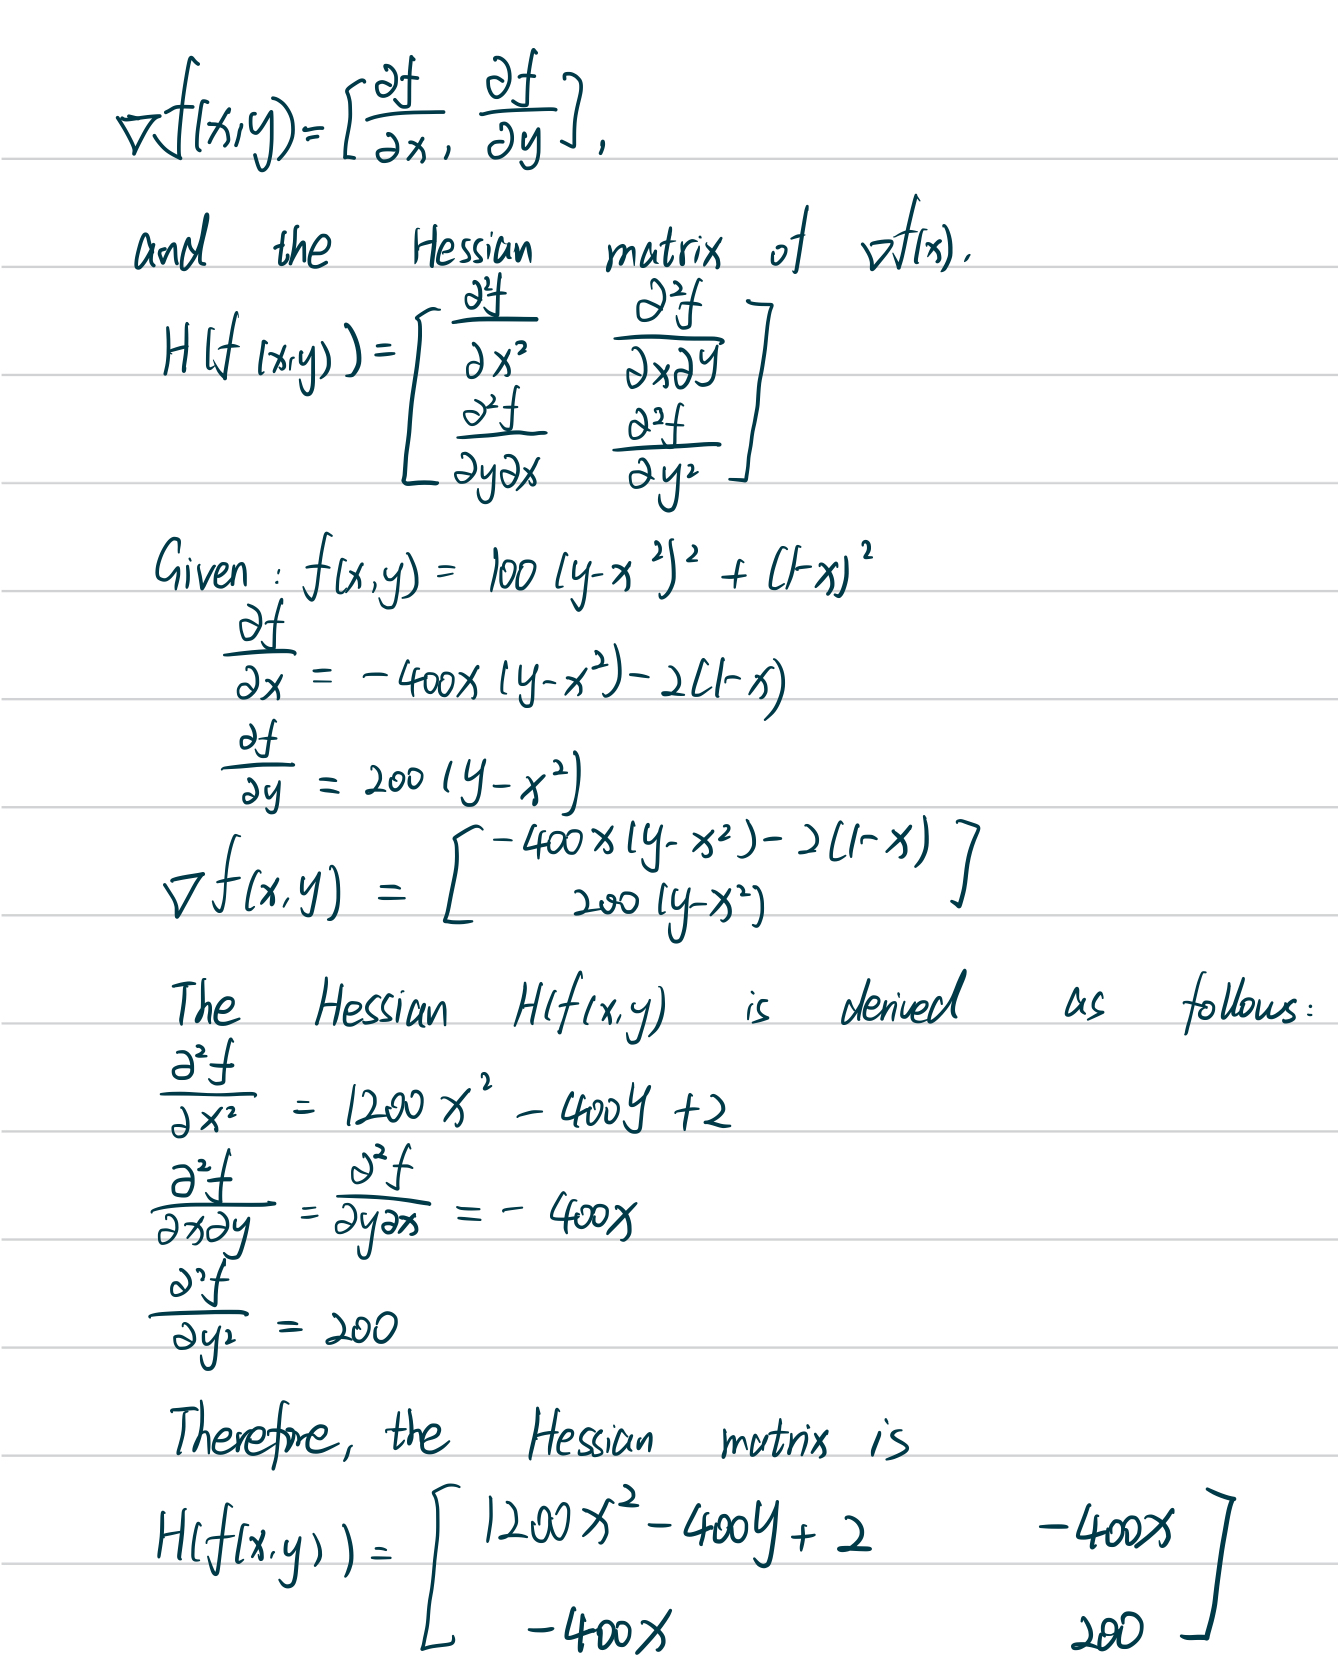 ∇f(x,y) = [∂f/∂x, ∂f/∂y],
and the Hessian matrix of ∇f(x).
H(f(x,y)) = [∂²f/∂x² ∂²f/∂x∂y
∂²f/∂y∂x ∂²f/∂y²]
Given: f(x,y) = 100(y-x²)² + (1-x)²
∂f/∂x = -400x(y-x²)-2(1-x)
∂f/∂y = 200(y-x²)
∇f(x,y) = [-400x(y-x²)-2(1-x)
200(y-x²)]
The Hessian H(f(x,y) is derived as follows:
∂²f/∂x² = 1200x² - 400y + 2
∂²f/∂x∂y = ∂²f/∂y∂x = -400x
∂²f/∂y² = 200
Therefore, the Hessian matrix is
H(f(x,y)) = [1200x² - 400y + 2 -400x
-400x 200]